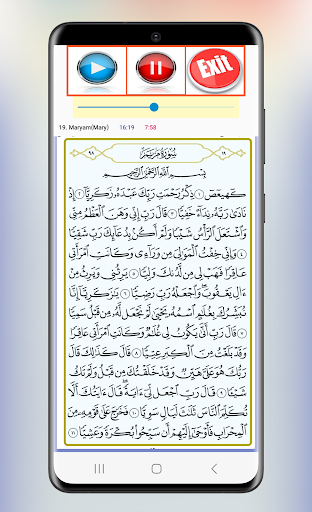 Exit
19. Maryam(Mary) 16:19 7:58
١٩ سُورَةُ مَرْيَمَ ٩٨
بِسْمِ ٱللَّهِ ٱلرَّحْمَٰنِ ٱلرَّحِيمِ
كٓهيعٓصٓ ١ ذِكْرُ رَحْمَتِ رَبِّكَ عَبْدَهُۥ زَكَرِيَّآ ٢ إِذْ
نَادَىٰ رَبَّهُۥ نِدَآءً خَفِيًّا ٣ قَالَ رَبِّ إِنِّى وَهَنَ ٱلْعَظْمُ مِنِّى
وَٱشْتَعَلَ ٱلرَّأْسُ شَيْبًا وَلَمْ أَكُنۢ بِدُعَآئِكَ رَبِّ شَقِيًّا
٤ وَإِنِّى خِفْتُ ٱلْمَوَٰلِىَ مِن وَرَآءِى وَكَانَتِ ٱمْرَأَتِى
عَاقِرًا فَهَبْ لِى مِن لَّدُنكَ وَلِيًّا ٥ يَرِثُنِى وَيَرِثُ مِنْ
ءَالِ يَعْقُوبَ ۖ وَٱجْعَلْهُ رَبِّ رَضِيًّا ٦ يَٰزَكَرِيَّآ إِنَّا
نُبَشِّرُكَ بِغُلَٰمٍ ٱسْمُهُۥ يَحْيَىٰ لَمْ نَجْعَل لَّهُۥ مِن قَبْلُ سَمِيًّا
٧ قَالَ رَبِّ أَنَّىٰ يَكُونُ لِى غُلَٰمٌ وَكَانَتِ ٱمْرَأَتِى عَاقِرًا
وَقَدْ بَلَغْتُ مِنَ ٱلْكِبَرِ عِتِيًّا ٨ قَالَ كَذَٰلِكَ قَالَ
رَبُّكَ هُوَ عَلَىَّ هَيِّنٌ وَقَدْ خَلَقْتُكَ مِن قَبْلُ وَلَمْ تَكُ
شَيْـًٔا ٩ قَالَ رَبِّ ٱجْعَل لِّىٓ ءَايَةً ۚ قَالَ ءَايَتُكَ أَلَّا
تُكَلِّمَ ٱلنَّاسَ ثَلَٰثَ لَيَالٍ سَوِيًّا ١٠ فَخَرَجَ عَلَىٰ قَوْمِهِۦ مِنَ
ٱلْمِحْرَابِ فَأَوْحَىٰٓ إِلَيْهِمْ أَن سَبِّحُوا۟ بُكْرَةً وَعَشِيًّا ١١